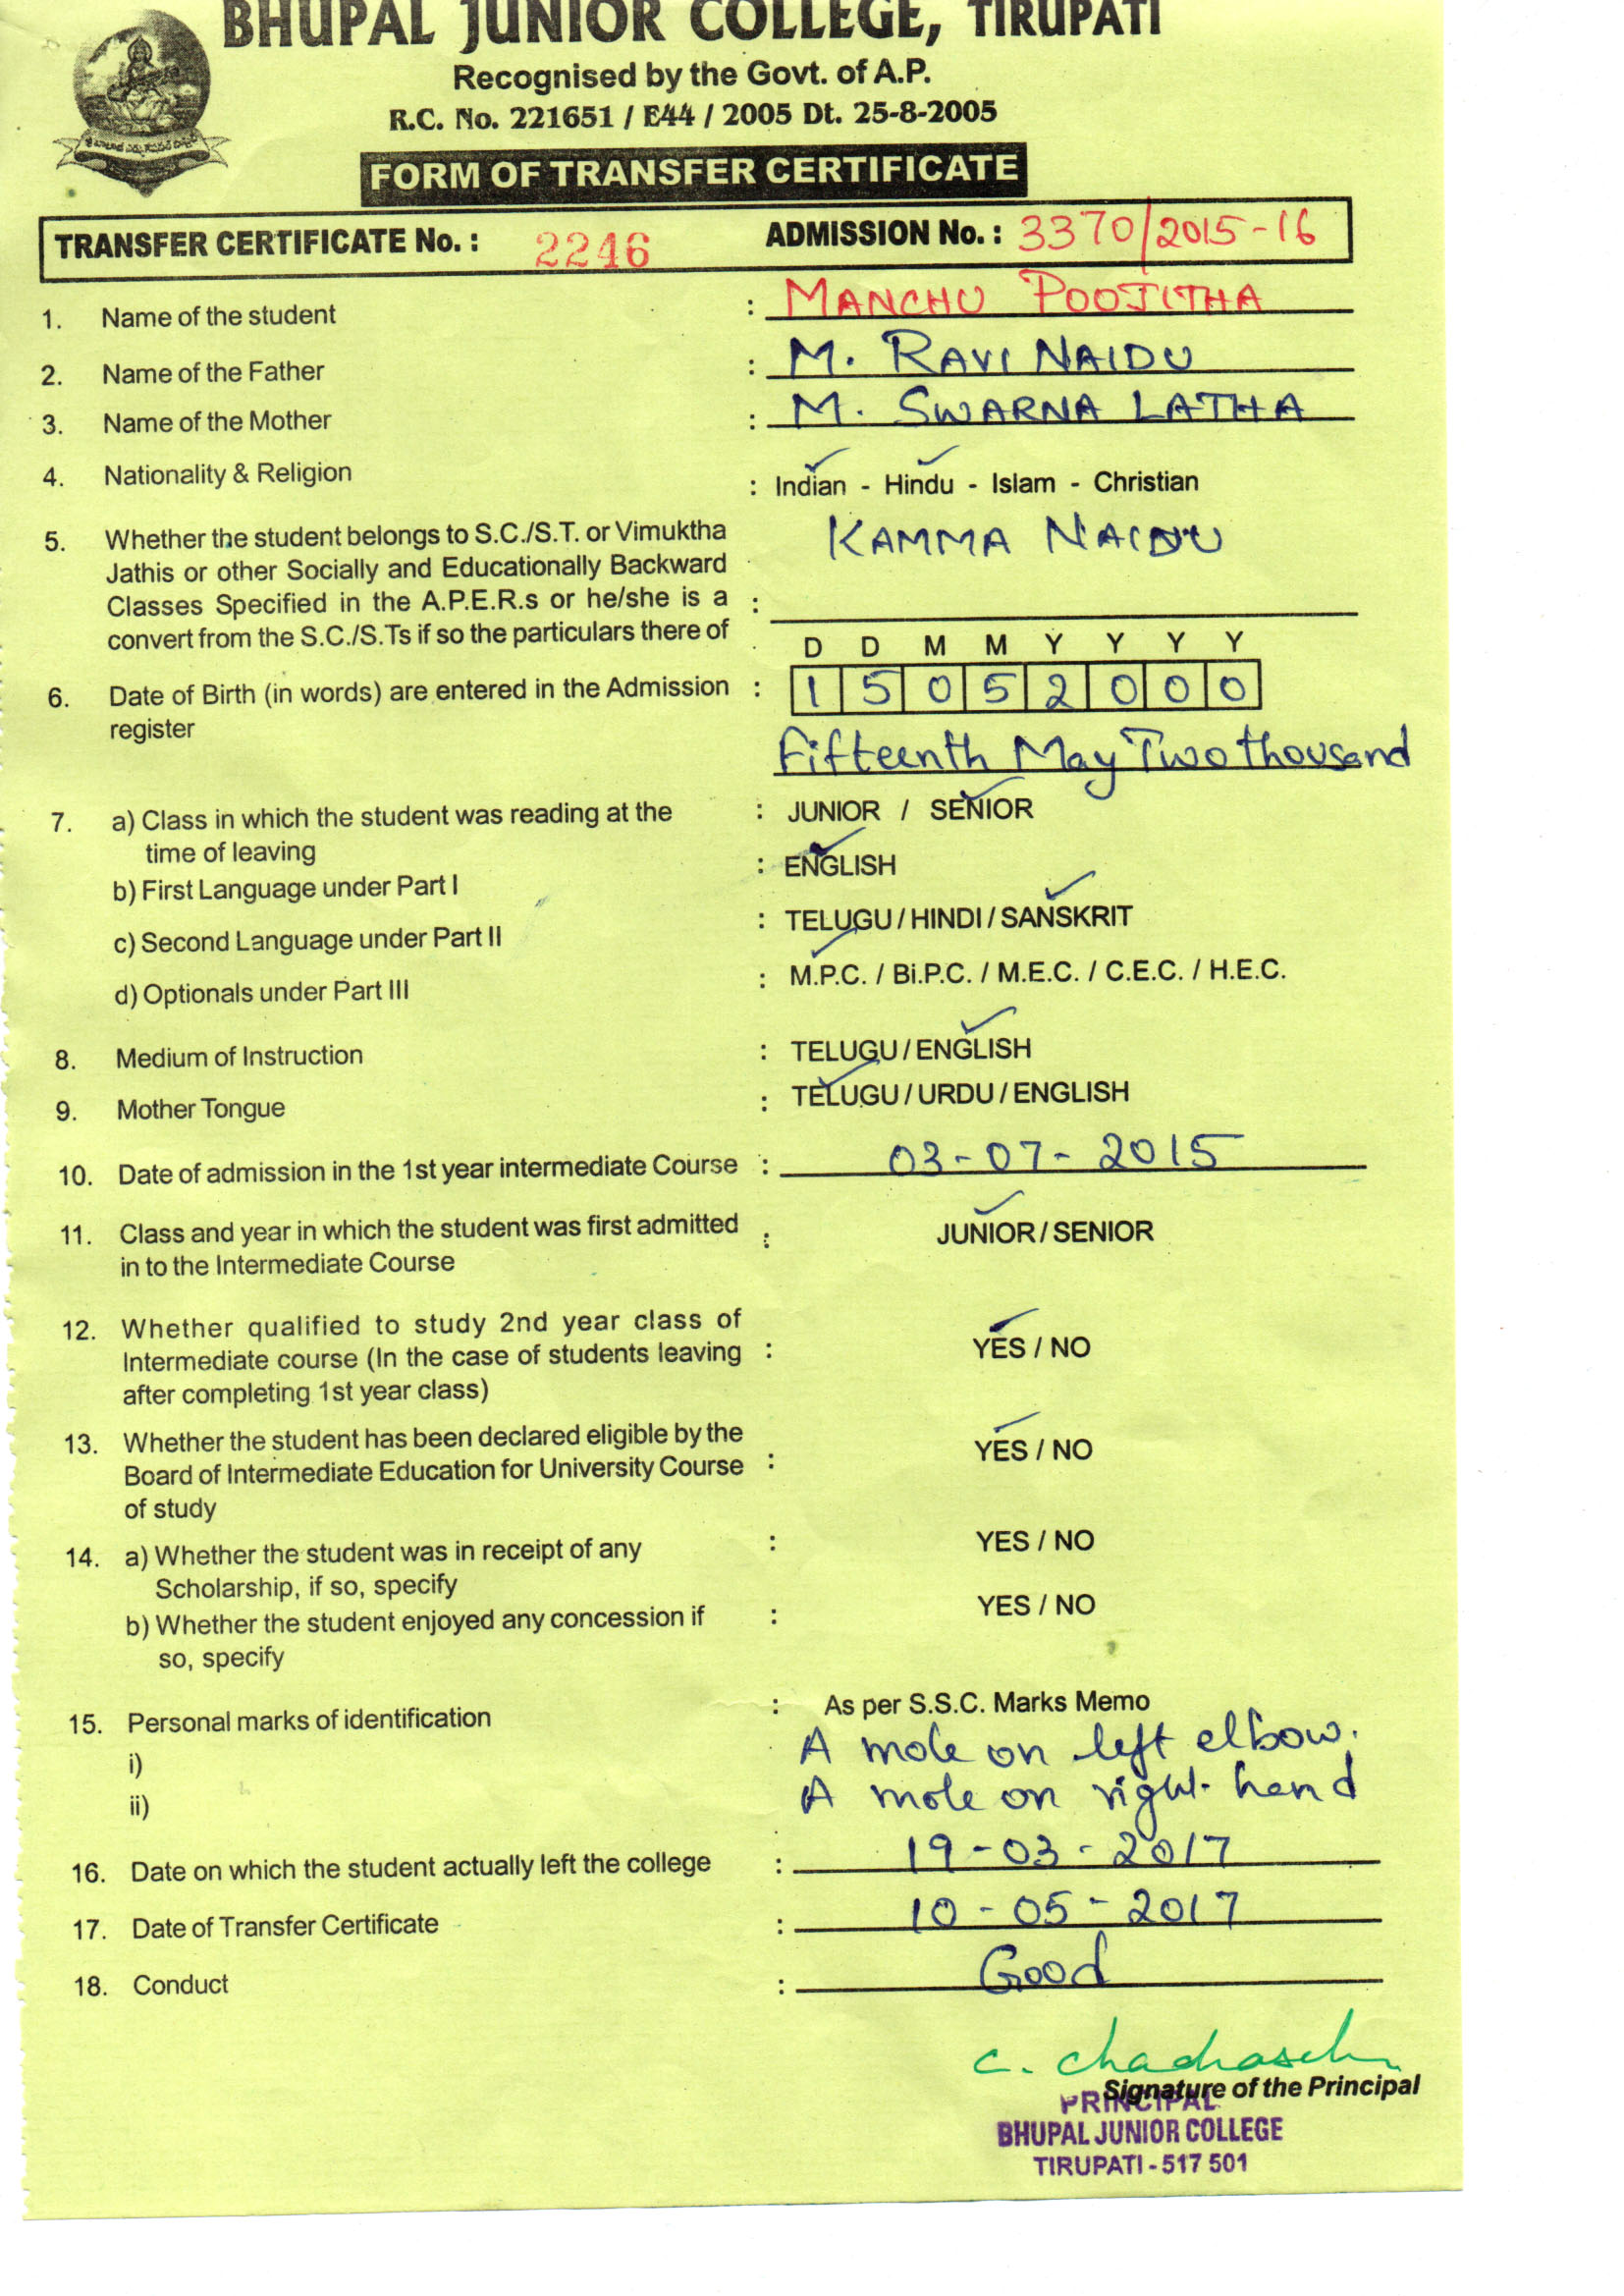 BHUPAL JUNIOR COLLEGE, TIRUPATI
Recognised by the Govt. of A.P.
R.C. No. 221651 / E44 / 2005 Dt. 25-8-2005
FORM OF TRANSFER CERTIFICATE
TRANSFER CERTIFICATE No. : 2246 ADMISSION No. : 3370/2015-16
1. Name of the student : MANCHU POOJITHA
2. Name of the Father : M. RAVI NAIDU
3. Name of the Mother : M. SWARNA LATHA
4. Nationality & Religion : Indian - Hindu - Islam - Christian
5. Whether the student belongs to S.C./S.T. or Vimuktha KAMMA NAIDU
Jathis or other Socially and Educationally Backward
Classes Specified in the A.P.E.R.s or he/she is a :
convert from the S.C./S.Ts if so the particulars there of
D D M M Y Y Y Y
6. Date of Birth (in words) are entered in the Admission : 1 5 0 5 2 0 0 0
register Fifteenth May Two thousand
7. a) Class in which the student was reading at the : JUNIOR / SENIOR
time of leaving
b) First Language under Part I : ENGLISH
c) Second Language under Part II : TELUGU / HINDI / SANSKRIT
d) Optionals under Part III : M.P.C. / Bi.P.C. / M.E.C. / C.E.C. / H.E.C.
8. Medium of Instruction : TELUGU / ENGLISH
9. Mother Tongue : TELUGU / URDU / ENGLISH
10. Date of admission in the 1st year intermediate Course : 03-07-2015
11. Class and year in which the student was first admitted : JUNIOR / SENIOR
in to the Intermediate Course
12. Whether qualified to study 2nd year class of
Intermediate course (In the case of students leaving : YES / NO
after completing 1st year class)
13. Whether the student has been declared eligible by the
Board of Intermediate Education for University Course : YES / NO
of study
14. a) Whether the student was in receipt of any : YES / NO
Scholarship, if so, specify
b) Whether the student enjoyed any concession if : YES / NO
so, specify
15. Personal marks of identification : As per S.S.C. Marks Memo
i) A mole on left elbow.
ii) A mole on right hand
16. Date on which the student actually left the college : 19-03-2017
17. Date of Transfer Certificate : 10-05-2017
18. Conduct : Good
Signature of the Principal
PRINCIPAL
BHUPAL JUNIOR COLLEGE
TIRUPATI - 517 501